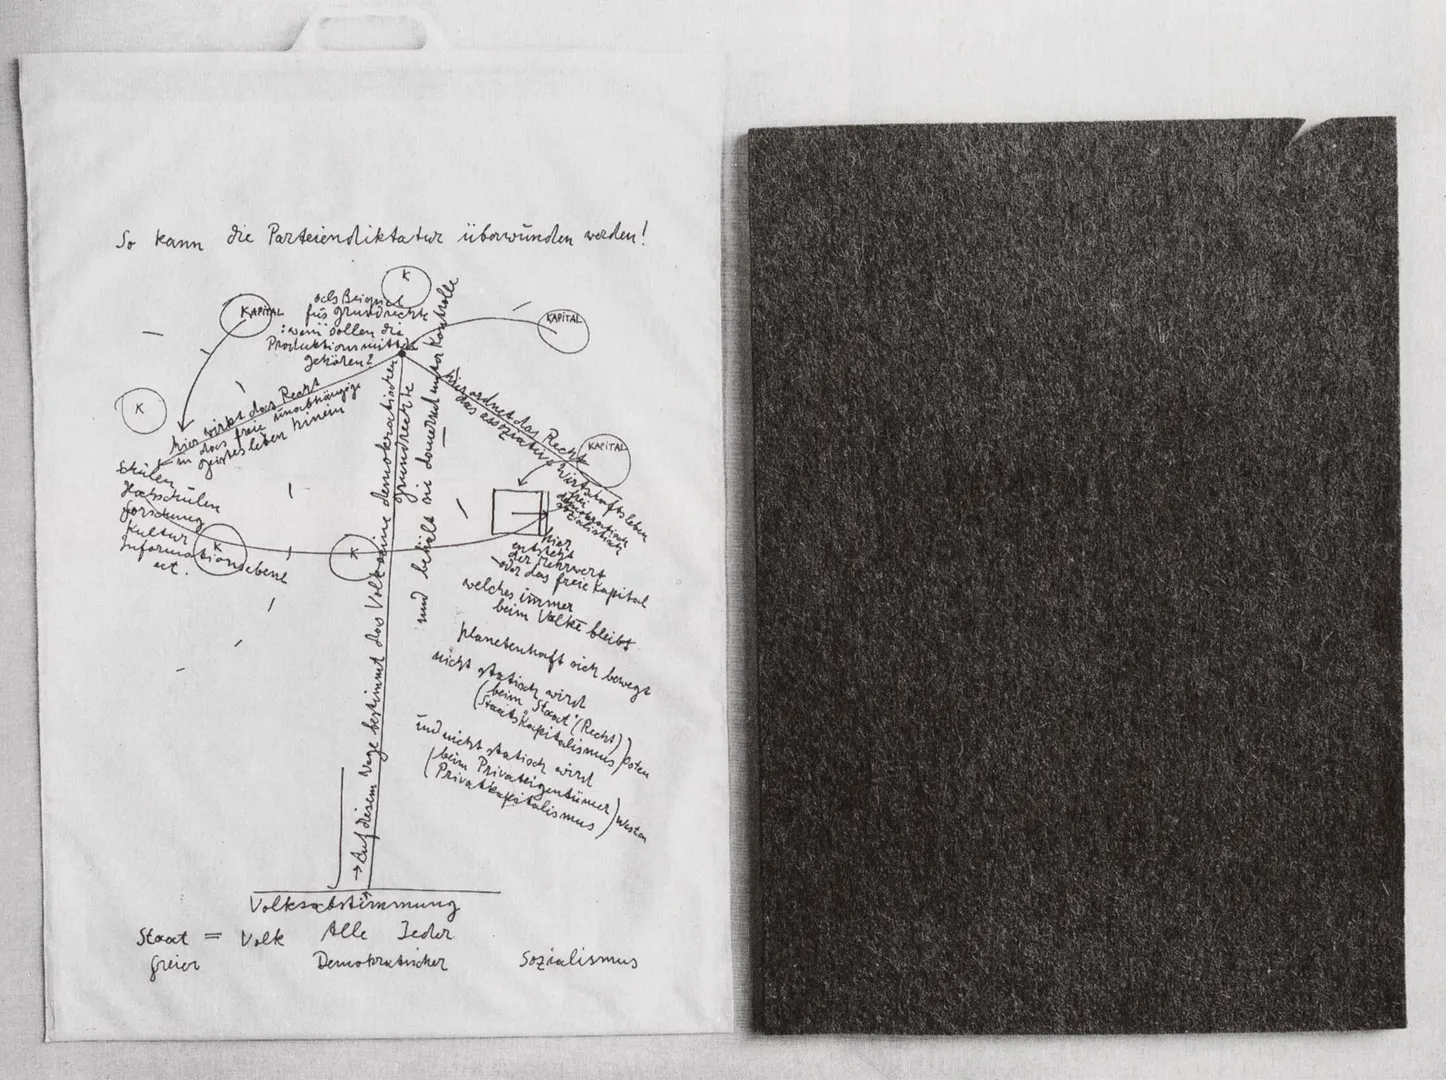 So kann die Parteiendiktatur überwunden werden!
K
KAPITAL
als Beispiel
für Grundrechte
: wem sollen die
Produktionsmittel
gehören?
KAPITAL
K
hier wirkt das Recht
in das freie unabhängige
Geistesleben hinein
Schulen
Hochschulen
Forschung
Kultur
Informationsebene
ect.
K
K
→ Auf diesem Wege bestimmt das Volk seine demokratischen
Grundrechte
und behält sie dauernd unter Kontrolle
hier ordnet das Recht
das assoziative Wirtschaftsleben
frei
demokratisch
sozialistisch
KAPITAL
hier
entsteht
der Mehrwert
oder das freie Kapital
welches immer
beim Volke bleibt
planetenhaft sich bewegt
nicht statisch wird
(beim "Staat" (Recht))
(Staatskapitalismus) Osten
und nicht statisch wird
(beim Privateigentümer)
(Privatkapitalismus) Westen
Volksabstimmung
Staat = Volk Alle Jeder
freier Demokratischer Sozialismus